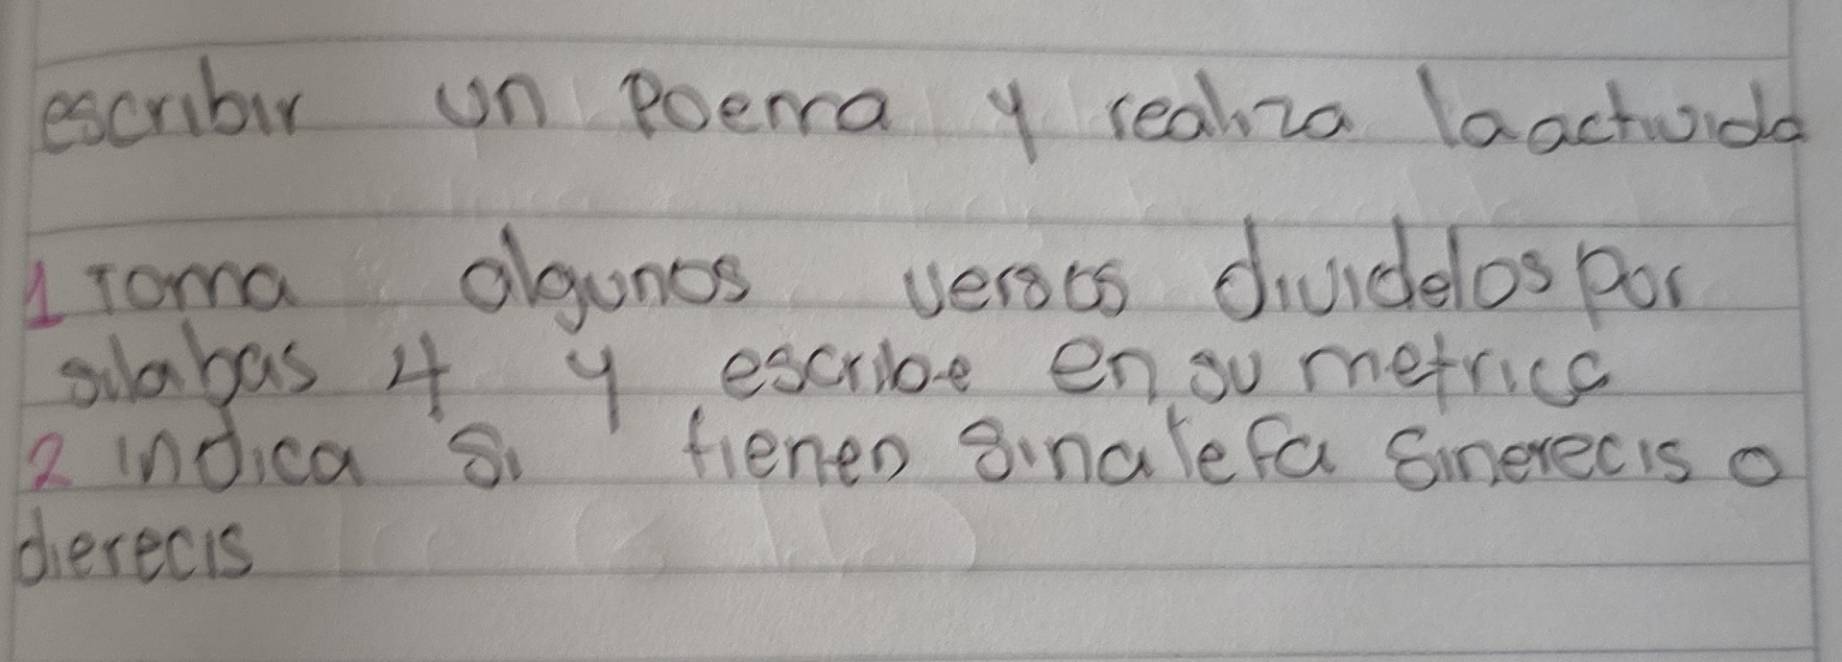 escribir un Poema y realiza la actividad
1 Toma algunos versos dividelos por
silabas 4 y escribe en su metrica
2 indica si tienen sinalefa sinerecis o
dierecis